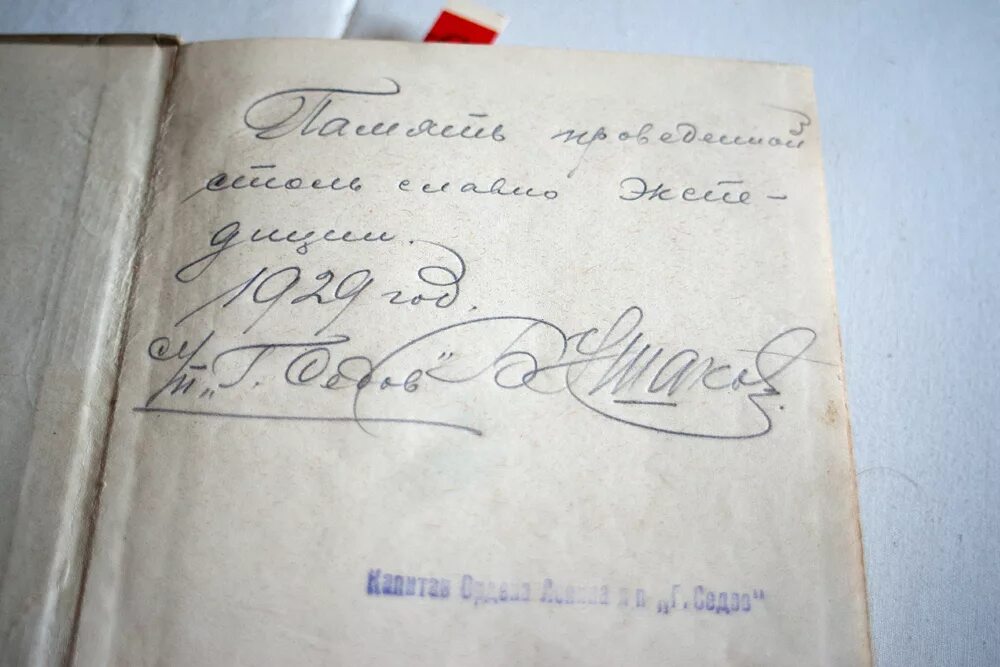 Память проведенной
столь славно Экспе-
диции.
1929 год.
„Г. Седов" Б Ушаков.
Капитан Ордена Ленина л п „Г. Седов"